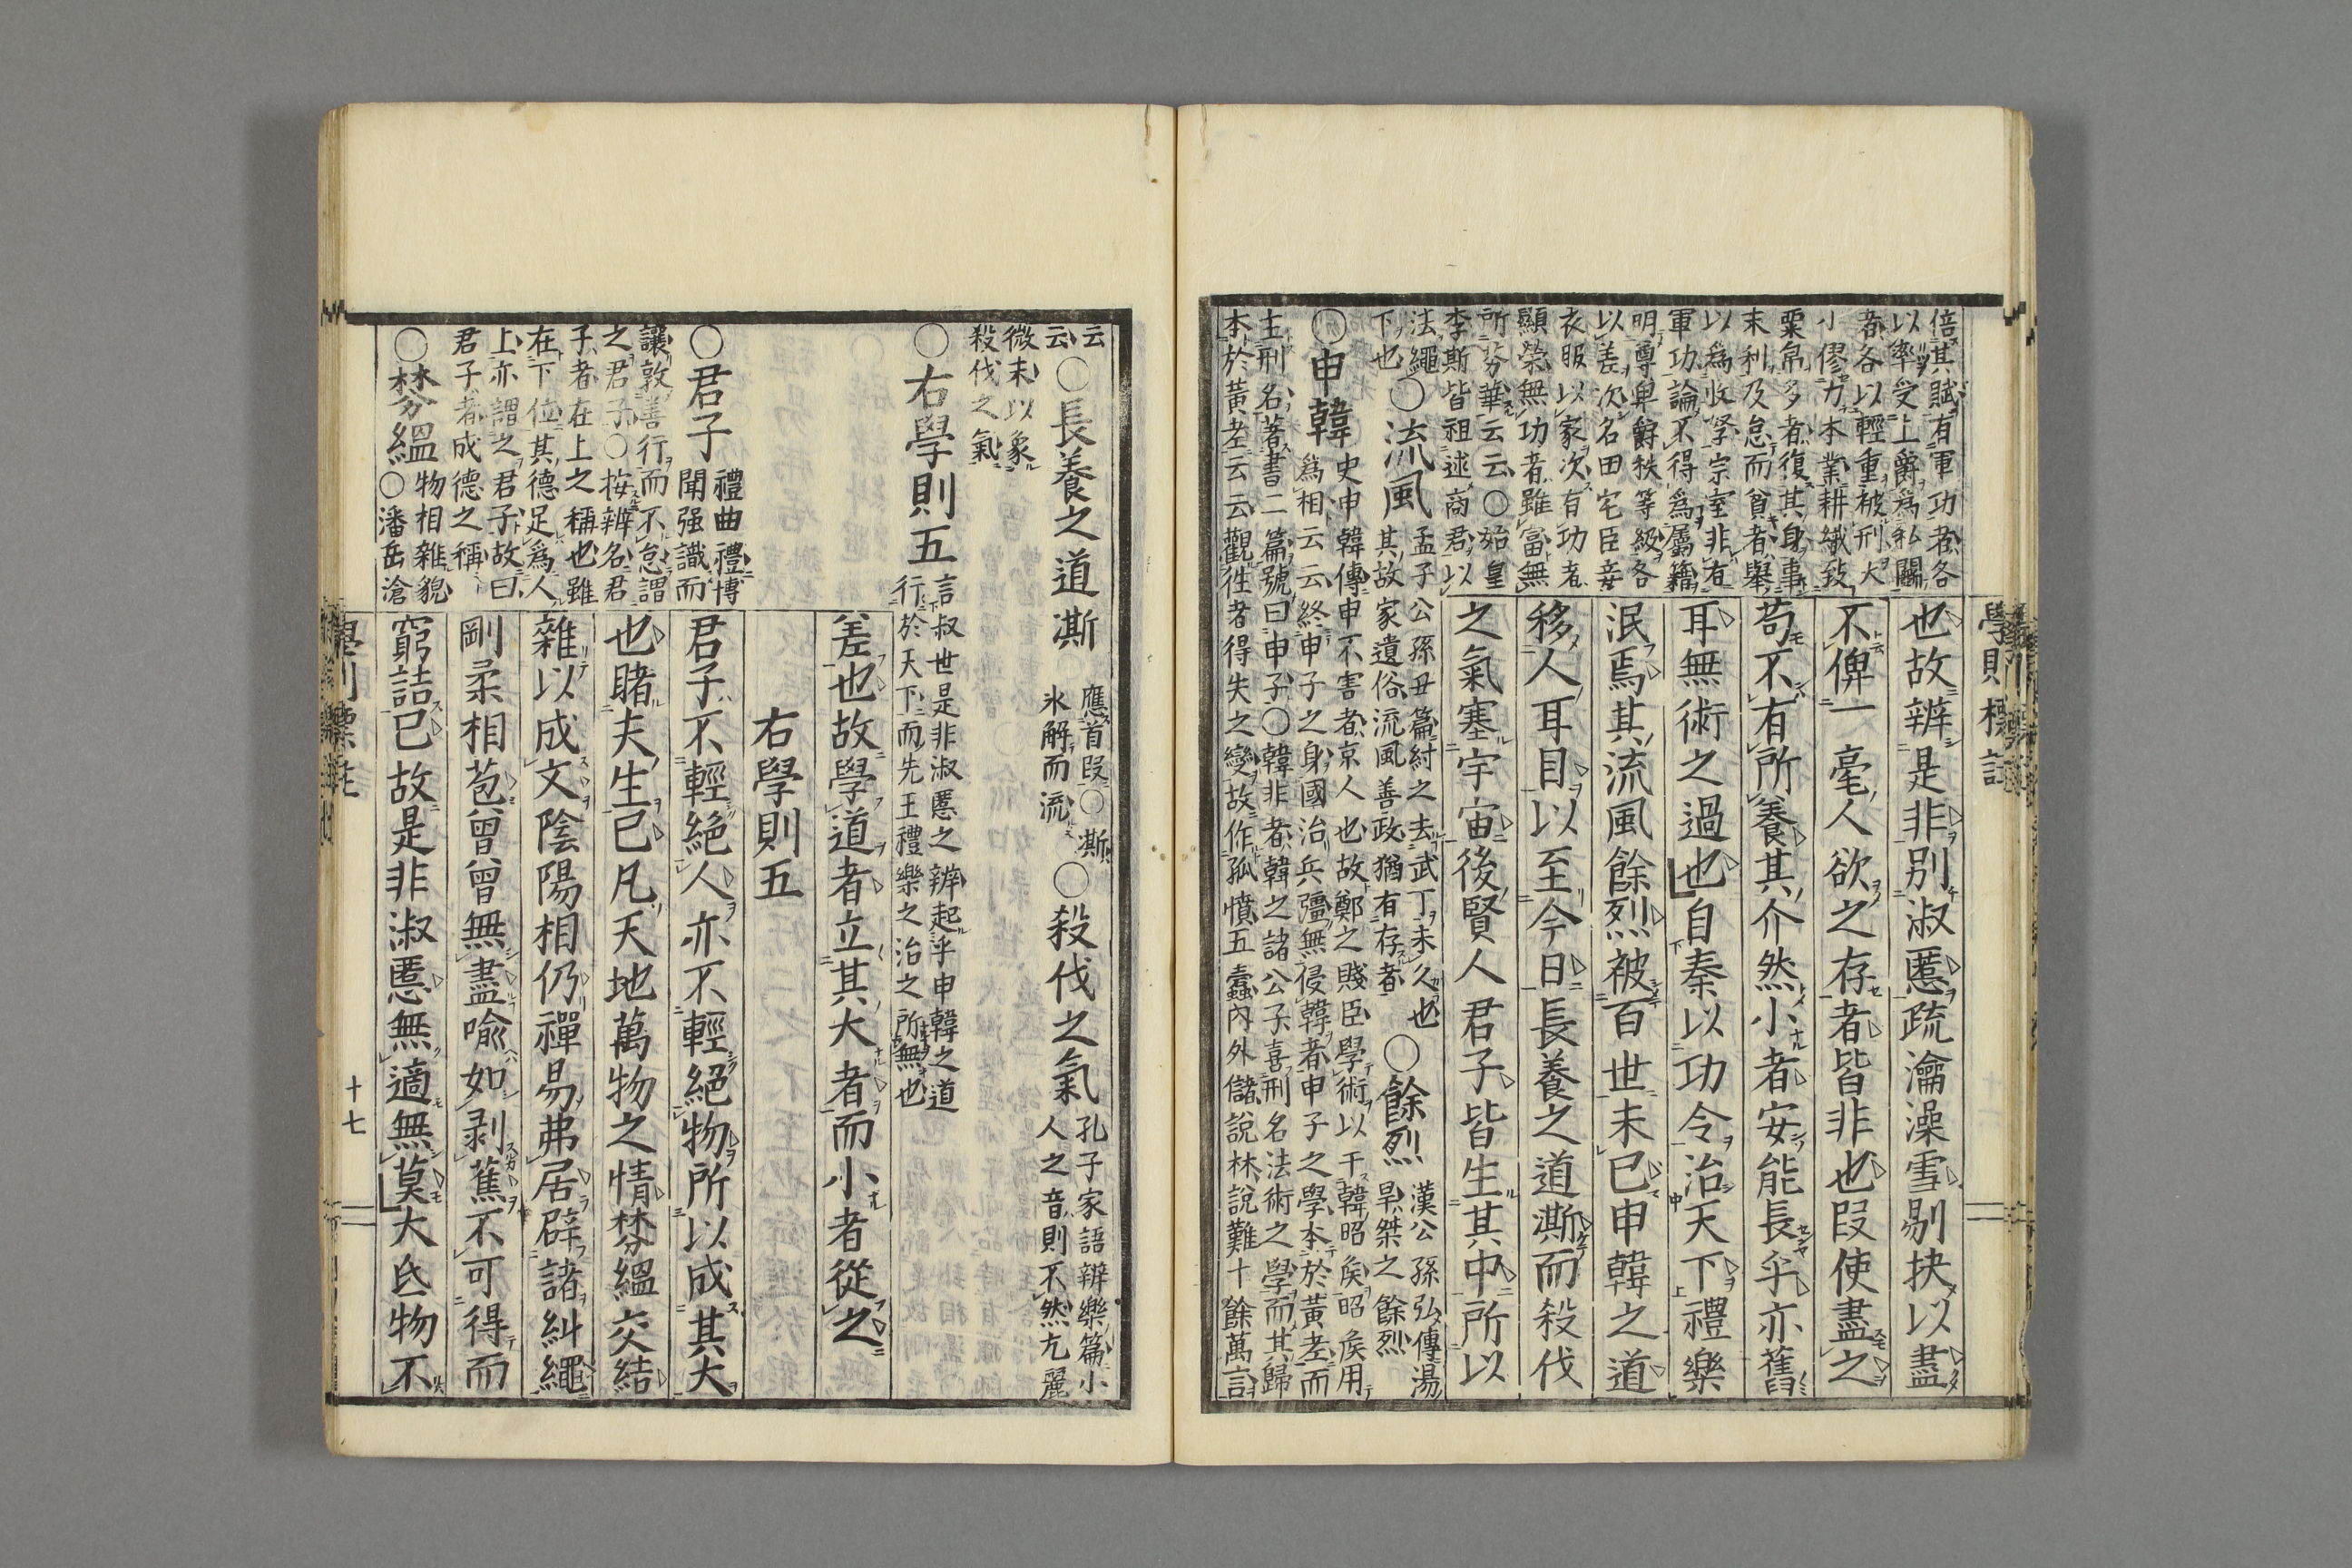 學則標註
倍其賦有軍功者各
以率受上爵爲私鬭
者各以輕重被刑大
小僇力本業耕織致
粟帛多者復其身事
末利及怠而貧者舉
以爲收孥宗室非有
軍功論不得爲屬籍
明尊卑爵秩等級各
以差次名田宅臣妾
衣服以家次有功者
顯榮無功者雖富無
所芬華云云○始皇
李斯皆祖述商君以
法繩
下也
○流風
孟子公孫丑篇紂之去武丁未久也
其故家遺俗流風善政猶有存者
○餘烈
漢公孫弘傳湯
旱桀之餘烈
○申韓
史申韓傳申不害者京人也故鄭之賤臣學術以干韓昭矦昭矦用
爲相云云終申子之身國治兵彊無侵韓者申子之學本於黃老而
主刑名著書二篇號曰申子○韓非者韓之諸公子喜刑名法術之學而其歸
本於黃老云云觀徃者得失之變故作孤憤五蠹內外儲說林說難十餘萬言
也故辨是非別淑慝疏瀹澡雪剔抉以盡
不俾一毫人欲之存者皆非也叚使盡之
苟不有所養其介然小者安能長乎亦舊
耳無術之過也自秦以功令治天下禮樂
泯焉其流風餘烈被百世未已申韓之道
移人耳目以至今日長養之道澌而殺伐
之氣塞宇宙後賢人君子皆生其中所以
云
云
○長養之道澌
應首叚○澌
氷解而流
○殺伐之氣
孔子家語辨樂篇小
人之音則不然亢麗
微末以象
殺伐之氣
○右學則五
言叔世是非淑慝之辨起乎申韓之道
行於天下而先王禮樂之治之所無也
差也故學道者立其大者而小者從之
右學則五
○君子
禮曲禮博
聞强識而
讓敦善行而不怠謂
之君子○按辨名君
子者在上之稱也雖
在下位其德足爲人
上亦謂之君子故曰
君子者成德之稱
○棼縕
物相雜貌
○潘岳滄
君子不輕絕人亦不輕絕物所以成其大
也睹夫生已凡天地萬物之情棼縕交結
雜以成文陰陽相仍禪易弗居辟諸糾繩
剛柔相苞曾曾無盡喩如剥蕉不可得而
窮詰已故是非淑慝無適無莫大氐物不
十七